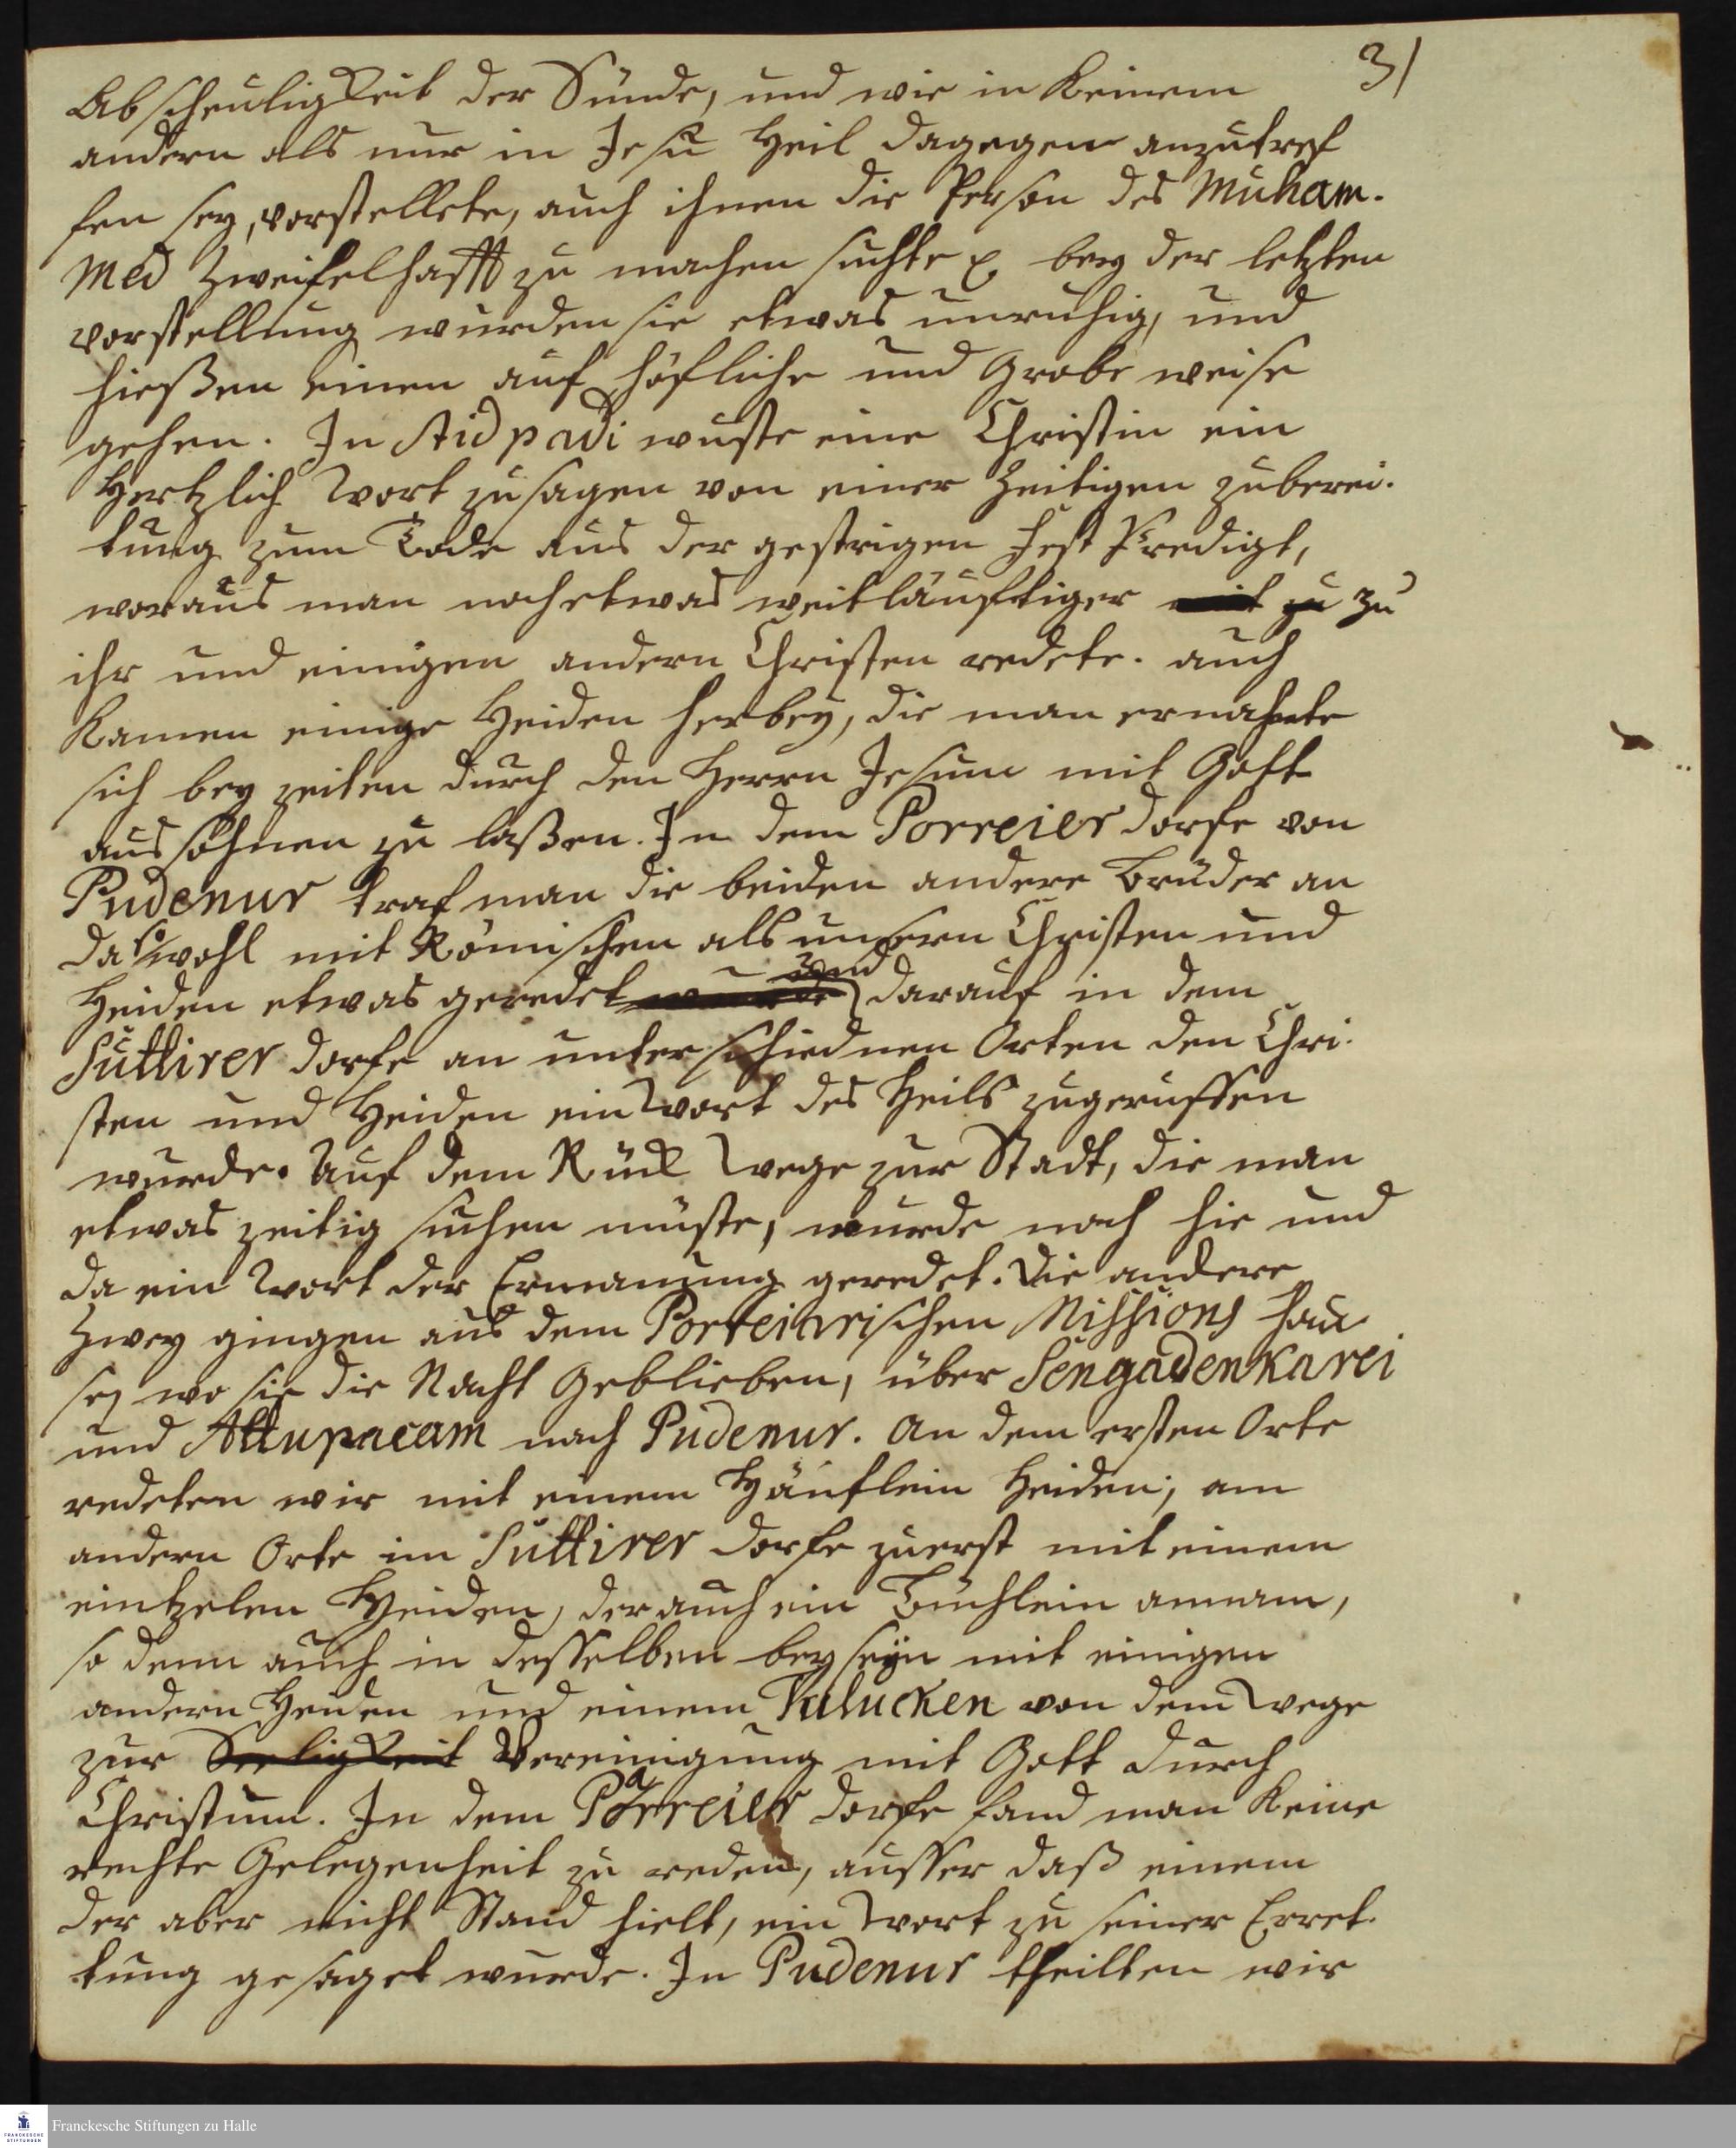 31
Abscheuligkeit der Sünde, und wie in keinem
andern als nur in Jesu Heil dagegen anzutref
fen sey, vorstellete, auch ihnen die Person des Muham-
med zweifelhafft zu machen suchte bey der letzten
vorstellung wurden sie etwas unruhig, und
hießen einen auf höfliche und Grobe weise
gehen. In Aidpadi wuste eine Christin ein
Hertzlich Wort zusagen von einer Zeitigen zuberei-
tung zum Tode aus der gestrigen Fest Predigt,
woraus man noch etwas weitläufftiger mit zu zu
ihr und einigen andern Christen redete. auch
kamen einige Heiden herbey, die man ermahnte
sich bey zeiten durch den Herrn Jesum mit Gott
aussöhnen zu laßen. In dem Porreier dorfe von
Pudenur traf man die beiden andere Brüder an
da sowohl mit Römischen als unsern Christen und
Heiden etwas geredet wurde und darauf in dem
Suttirer dorfe an unterschiednen Orten den Chri-
sten und Heiden ein Wort des Heils zugeruffen
wurde. Auf dem Rück Wege zur Stadt, die man
etwas zeitig suchen müste, wurde noch hie und
da ein Wort der Ermanung geredet. Die andere
Zwey gingen aus dem Porreiarischen Missions Hau-
se, wo sie die Nacht Geblieben, über Sengadenkarei
und Attupacam nach Pudenur. An dem ersten Orte
redeten wir mit einem Häuflein Heiden, am
andern Orte im Suttirer dorfe zuerst mit einem
eintzelen Heiden, der auch ein Büchlein annam,
so denn auch in desselben beyseyn mit einigen
andern Heiden und einem Tulucken von dem Wege
zur Seeligkeit Vereinigung mit Gott durch
Christum. In dem Parreier dorfe fand man keine
rechte Gelegenheit zu reden, ausser daß einem
der aber nicht Stand hielt, ein Wort zu seiner Erret-
tung gesaget wurde. In Pudenur theilten wir
Franckesche Stiftungen zu Halle